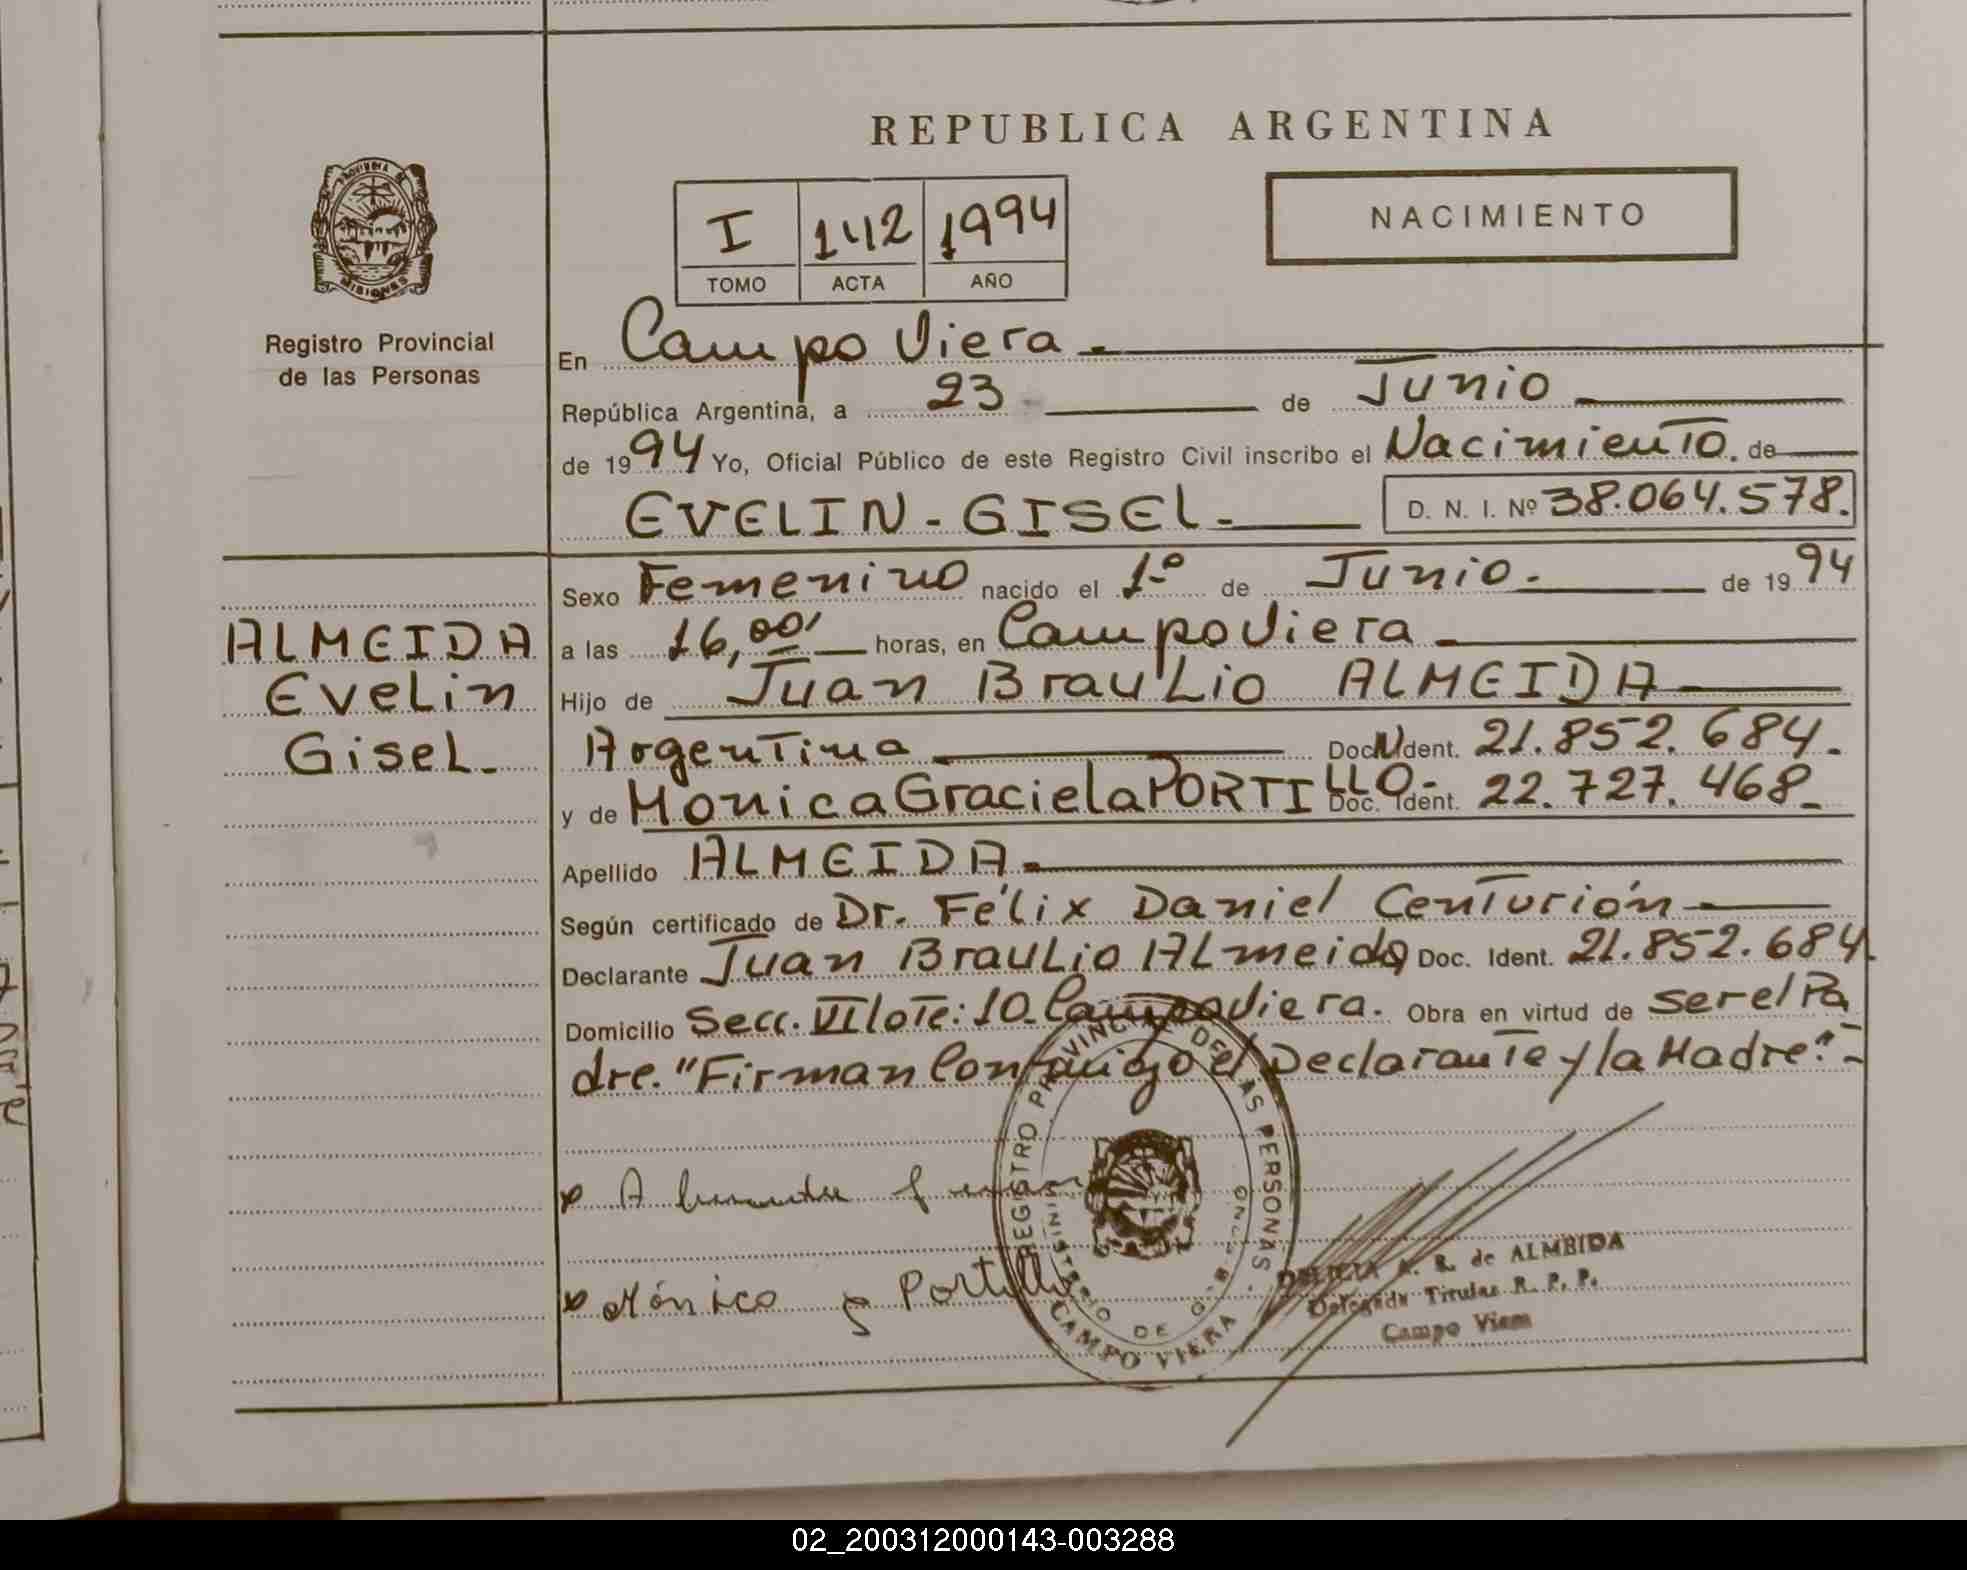 REPUBLICA ARGENTINA
NACIMIENTO
I 142 1994
TOMO ACTA AÑO
MISIONES
Registro Provincial
de las Personas
En Campo Viera.
República Argentina, a 23 de Junio
de 1994 Yo, Oficial Público de este Registro Civil inscribo el Nacimiento. de
EVELIN - GISEL. D. N. I. Nº 38.064.578.
ALMEIDA
Evelin
Gisel.
Sexo Femenino nacido el 1º de Junio. de 1994
a las 16,00' horas, en Campo Viera
Hijo de Juan Braulio ALMEIDA
Argentina Doc. N Ident. 21.852.684.
y de Monica Graciela PORTILLO.- Doc. Ident. 22.727.468.
Apellido ALMEIDA.
Según certificado de Dr. Félix Daniel Centurión
Declarante Juan Braulio ALmeida Doc. Ident. 21.852.684.
Domicilio Secc. VI lote: 10. Campo Viera. Obra en virtud de ser el Pa
dre. "Firman Conmigo el Declarante y la Madre".-
REGISTRO PROVINCIAL DE LAS PERSONAS -
MINISTERIO DE GOBIERNO
CAMPO VIERA
x Mónica G Portillo
A. R. de ALMEIDA
Delegada Titular R. P. P.
Campo Viera
02_200312000143-003288